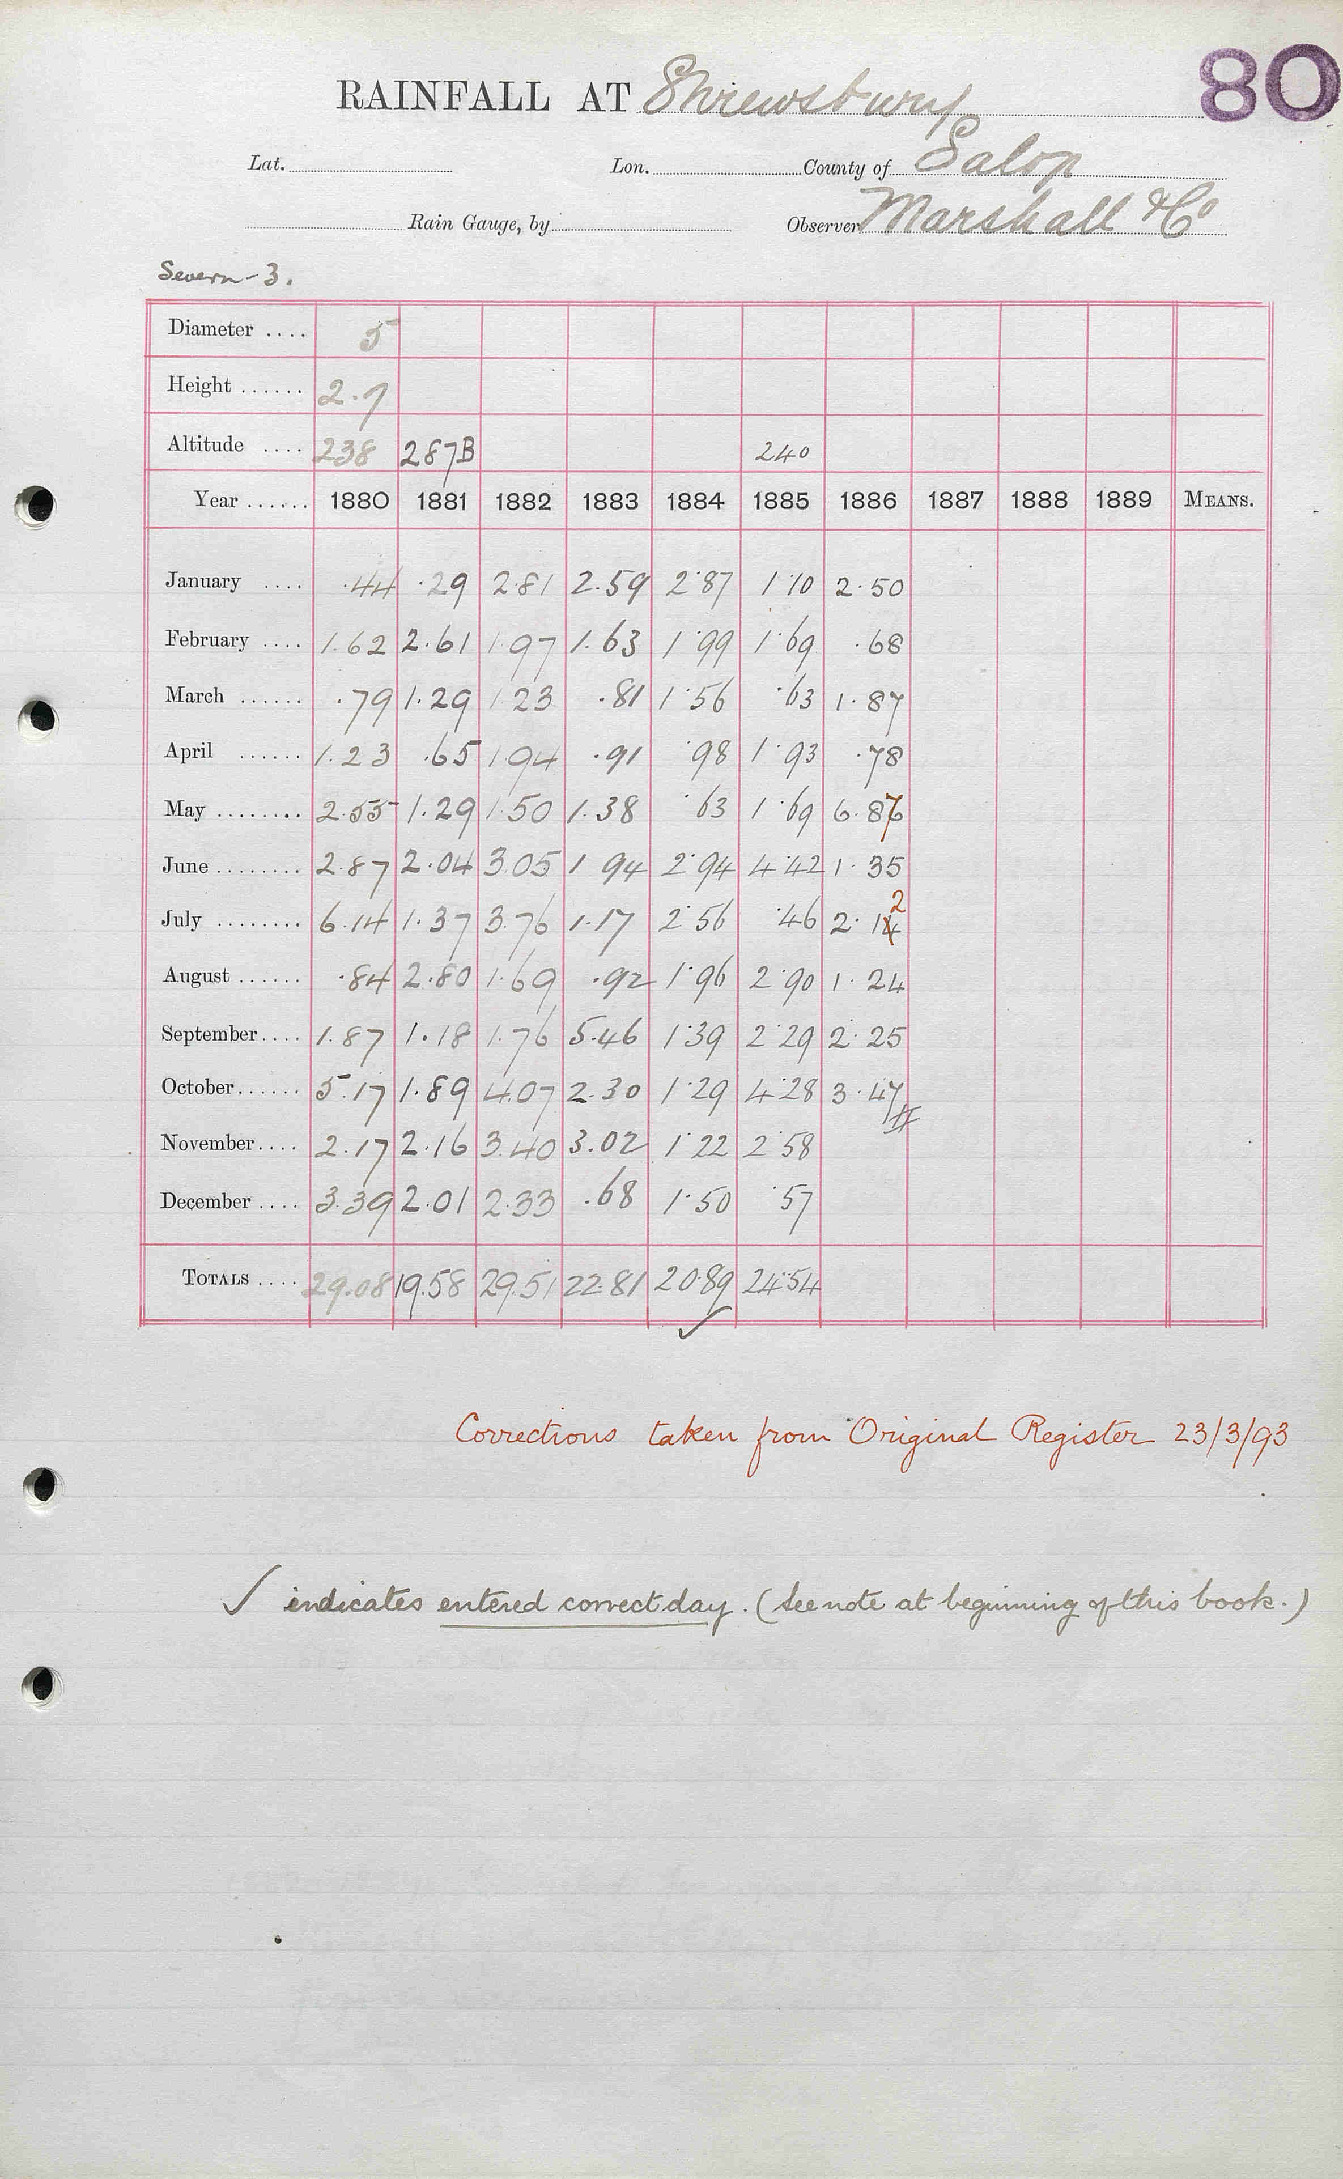 80
RAINFALL AT Shrewsbury
Lat. Lon. County of Salop
Rain Gauge, by Observer Marshall & Co
Severn-3.
Diameter .... 5
Height ...... 2.7
Altitude .... 238 287B 240
Year ...... 1880 1881 1882 1883 1884 1885 1886 1887 1888 1889 MEANS.
January .... .44 .29 2.81 2.59 2.87 1.10 2.50
February .... 1.62 2.61 1.97 1.63 1.99 1.69 .68
March ...... .79 1.29 1.23 .81 1.56 .63 1.87
April ...... 1.23 .65 1.94 .91 .98 1.93 .78
May ........ 2.55 1.29 1.50 1.38 .63 1.69 6.86
June ........ 2.87 2.04 3.05 1 94 2.94 4.42 1.35
July ........ 6.14 1.37 3.76 1.17 2.56 .46 2.14 2
August ...... .84 2.80 1.69 .92 1.96 2.90 1.24
September .... 1.87 1.18 1.76 5.46 1.39 2.29 2.25
October ...... 5.17 1.89 4.07 2.30 1.29 4.28 3.47
November .... 2.17 2.16 3.40 3.02 1.22 2.58
December .... 3.39 2.01 2.33 .68 1.50 .57
TOTALS .... 29.08 19.58 29.51 22.81 20.89 24.54
✓
Corrections taken from Original Register 23/3/93
✓ indicates entered correct day. (See note at beginning of this book.)